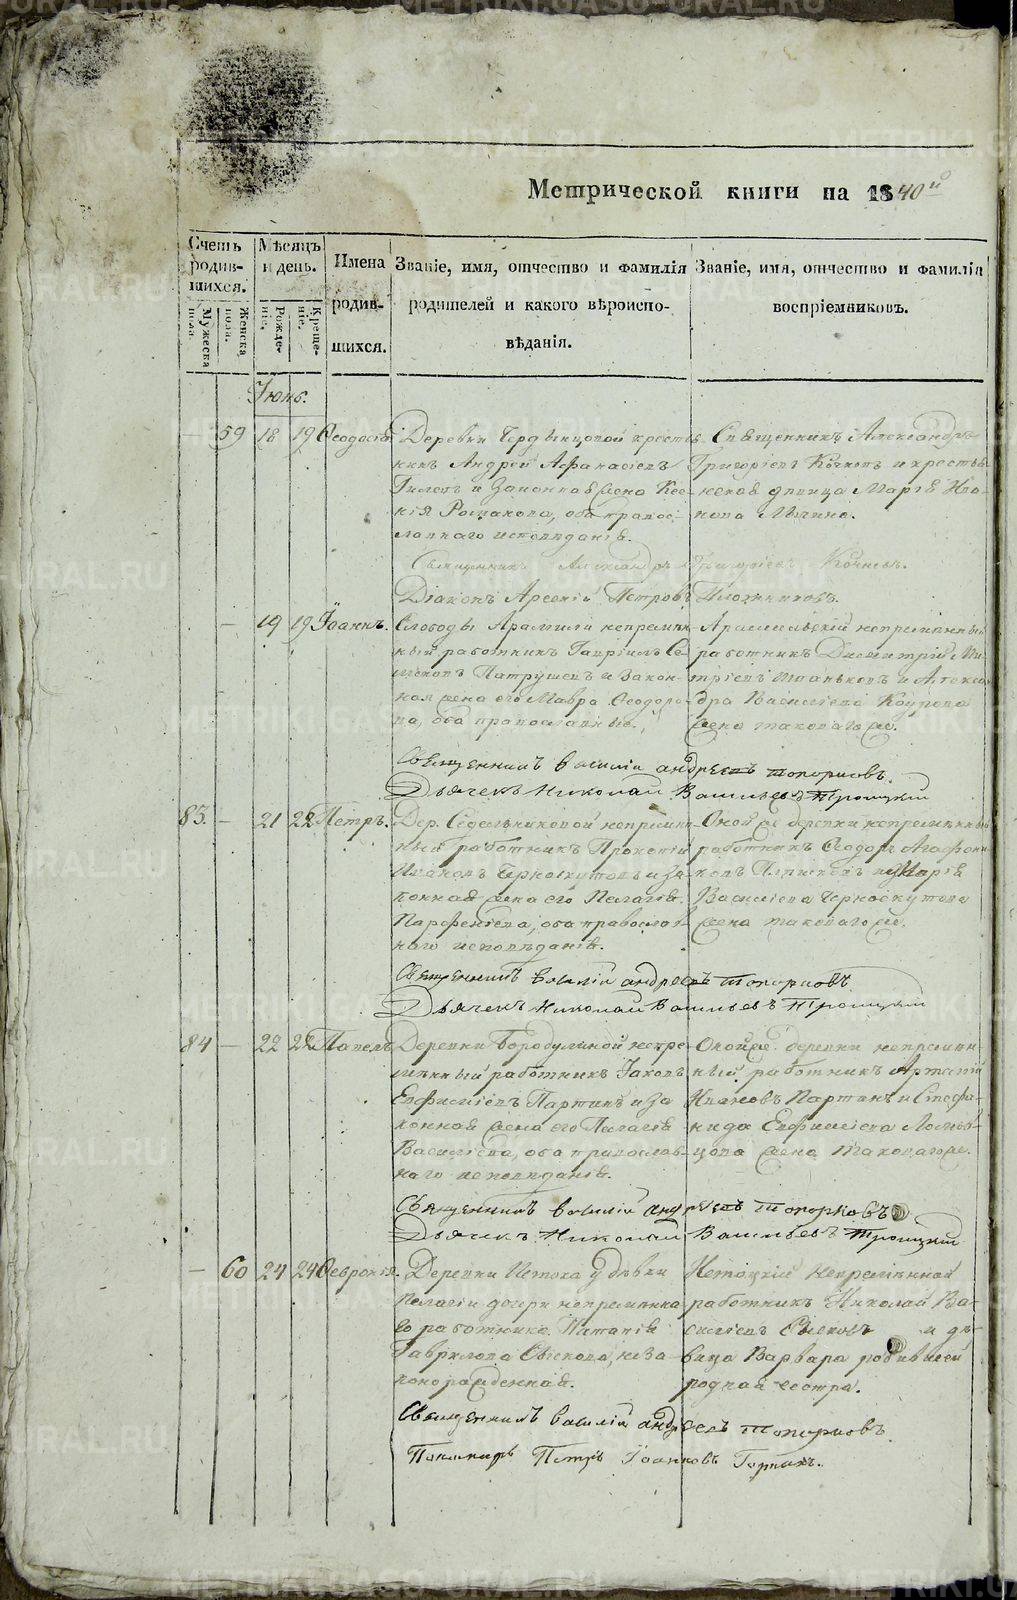 Метрической книги на 1840й
Счетъ родив-шихся.
Мѣсяцъ и день.
Имена родив-шихся.
Званіе, имя, отчество и фамилія родителей и какого вѣроиспо-вѣданія.
Званіе, имя, отчество и фамилія воспріемниковъ.
Мужеска пола.
Женска пола.
Рожде-ніе.
Креще-ніе.
Іюнь.
— 59 18 19 Ѳеодосія
Деревни крестья-
нинъ Андрей Афанасіевъ
и законная жена
оба правос-
лавнаго исповѣданія.
Священникъ Александръ
Григоріевъ и крестья-
нская дѣвица Марія Ива-
нова
Священникъ Александръ Григоріевъ
Діаконъ Арсеній Петровъ Плотниковъ.
— 19 19 Іоаннъ.
Слободы Арамили непремѣн-
ный работникъ Гавріилъ Се-
меновъ Патрушевъ и закон-
ная жена его Мавра Ѳеодоро-
ва, оба православные.
Арамильскій непремѣнный
работникъ Димитрій Ди-
митріевъ и Алекса-
дра Василіева
жена таковаго же.
Священникъ Василій Андреевъ Топорковъ.
Дьячекъ Николай Васильевъ Троицкій
83. — 21 22 Петръ.
Дер. Седельниковой непремѣн-
ный работникъ Прокопій
Ивановъ Черноскутовъ и за-
конная жена его Пелагія
Парфеніева, оба православ-
наго исповѣданія.
Оной же деревни непремѣнный
работникъ Ѳеодоръ Агафони-
ковъ и Марія
Василіева Черноскутова
жена таковаго же.
Священникъ Василій Андреевъ Топорковъ.
Дьячекъ Николай Васильевъ Троицкій
84 — 22 22 Павелъ
Деревни Бородулиной непре-
мѣнный работникъ Іаковъ
Евфиміевъ Партинъ и за-
конная жена его Пелагія
Василіева, оба православ-
наго исповѣданія.
Оной же деревни непремѣн-
ный работникъ Артемій
Ивановъ Партинъ и Стефа-
нида Евфиміева
жена таковаго же.
Священникъ Василій Андреевъ Топорковъ
Дьячекъ Николай Васильевъ Троицкій
— 60 24 24 Ѳевронія.
Деревни Истока у дѣвки
Пелагіи дочери непремѣнна-
го работника
Гаврилова Сыскова, неза-
конорожденная.
Истоцкій непремѣнной
работникъ Николай Ва-
силіевъ Сысковъ и дѣ-
вица Варвара родившей
родная сестра.
Священникъ Василій Андреевъ Топорковъ
Пономарь Петръ Іоанновъ